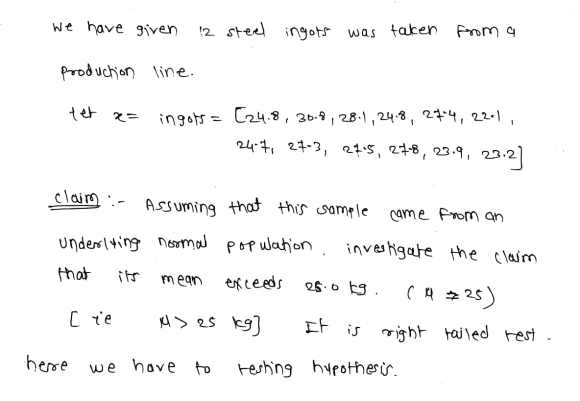 We have given 12 steel ingots was taken from a
production line.
let x = ingots = [24.8, 30.8, 28.1, 24.8, 27.4, 22.1,
24.7, 27.3, 27.5, 27.8, 23.9, 23.2]
claim :- Assuming that this sample came from an
underlying normal population. investigate the claim
that its mean exceeds 25.0 kg. ( μ ≥ 25 )
[ ie μ > 25 kg] It is right tailed test.
here we have to testing hypothesis.